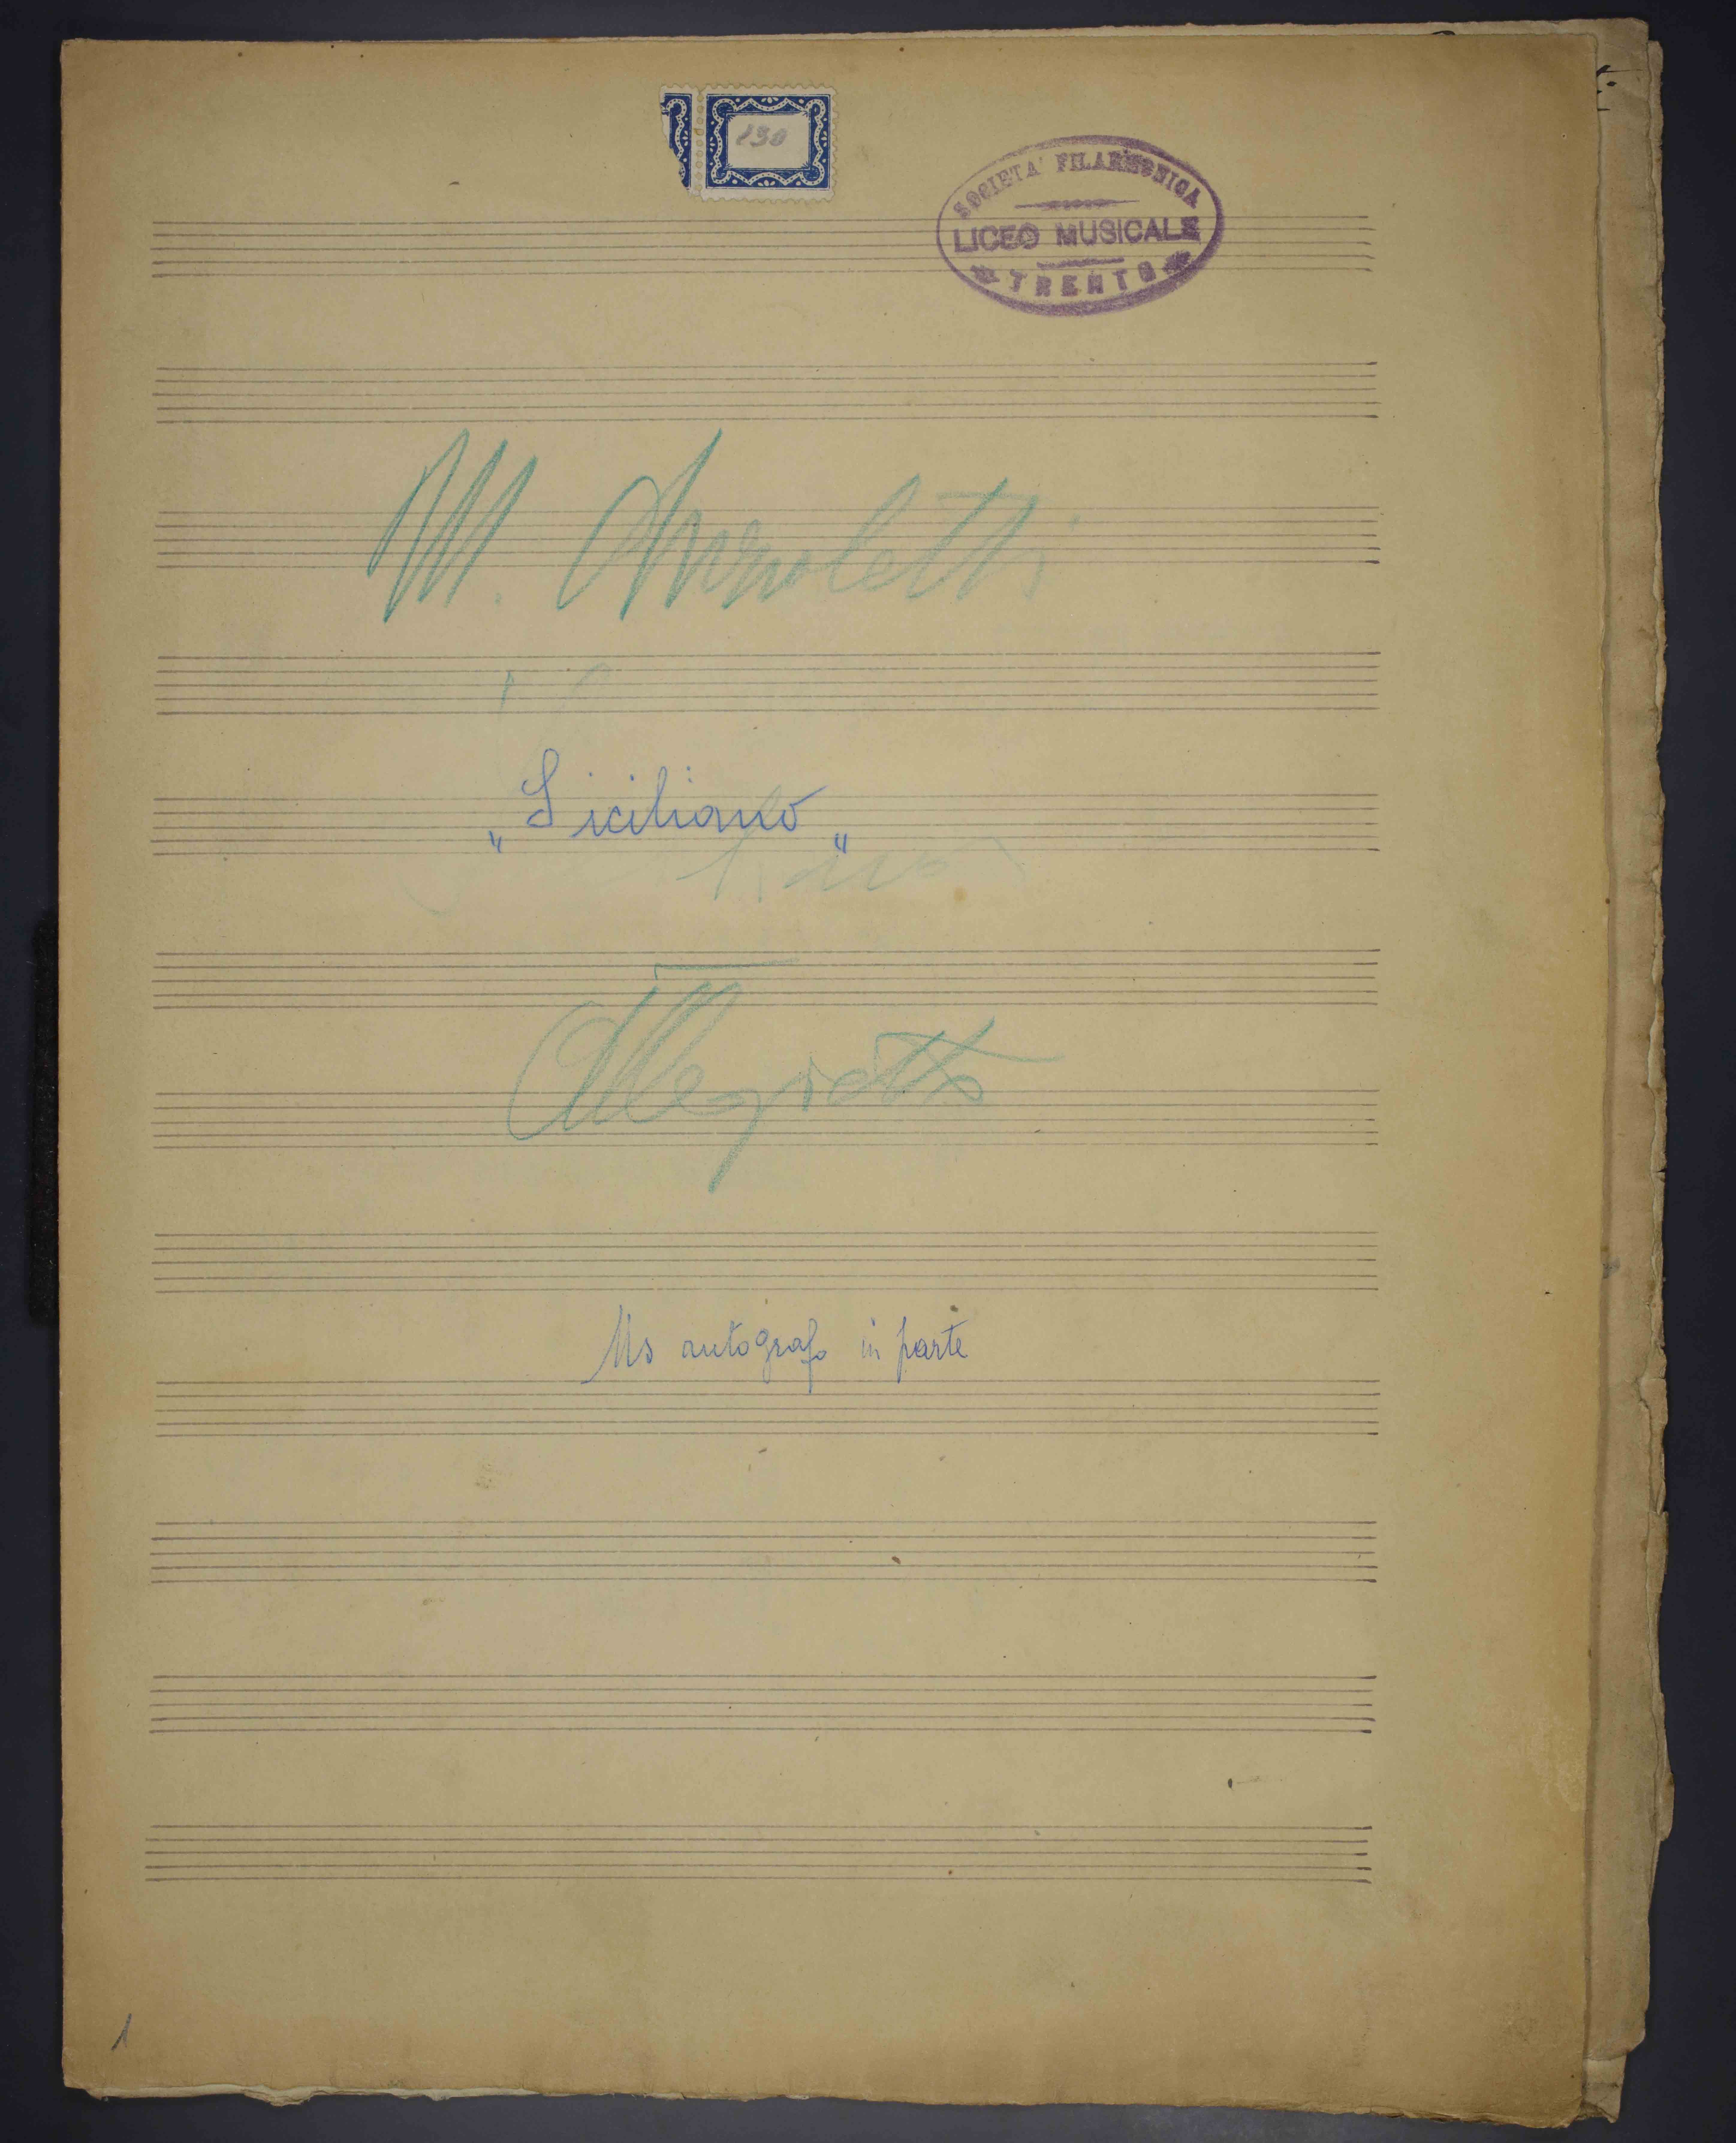 190
SOCIETA' FILARMONICA
LICEO MUSICALE
TRENTO
M.
„Siciliano„
Allegretto
Ms autografo in parte
1